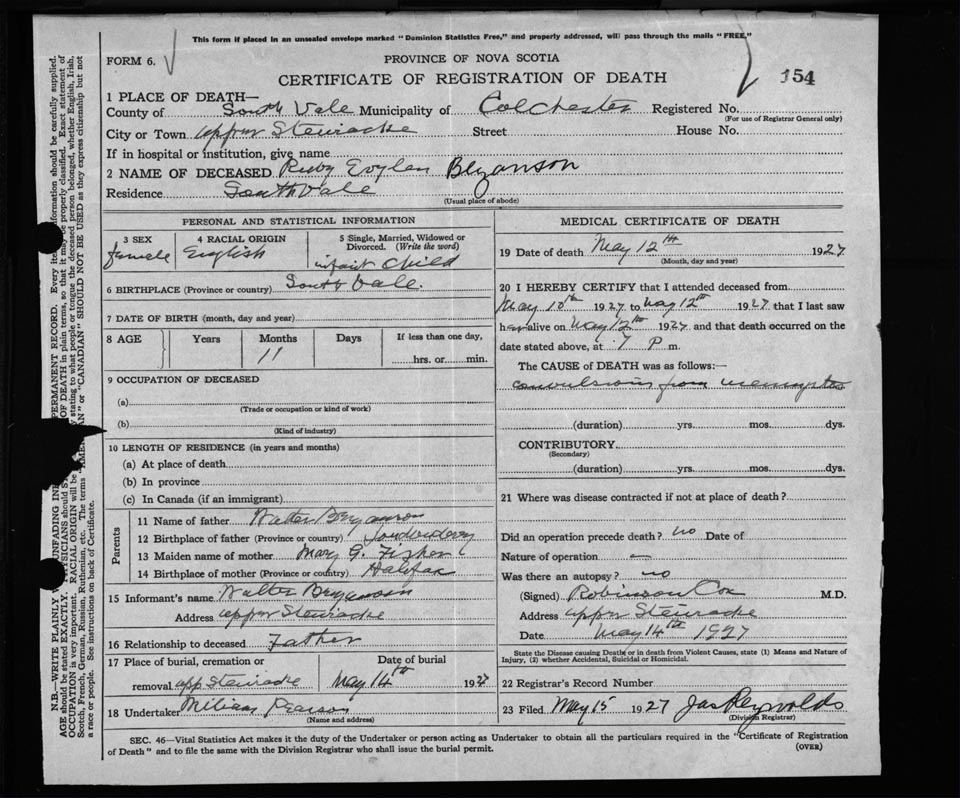 This form if placed in an unsealed envelope marked "Dominion Statistics Free," and properly addressed, will pass through the mails "FREE."
FORM 6.
PROVINCE OF NOVA SCOTIA
CERTIFICATE OF REGISTRATION OF DEATH
154
1 PLACE OF DEATH—
County of South Vale Municipality of Colchester Registered No.
(For use of Registrar General only)
City or Town upper Stewiacke Street House No.
If in hospital or institution, give name
2 NAME OF DECEASED Ruby Evylen Bezanson
Residence South Vale
(Usual place of abode)
PERSONAL AND STATISTICAL INFORMATION
3 SEX 4 RACIAL ORIGIN 5 Single, Married, Widowed or Divorced. (Write the word)
female English infant child
6 BIRTHPLACE (Province or country) South Vale.
7 DATE OF BIRTH (month, day and year)
8 AGE Years Months Days If less than one day,
11 hrs. or min.
9 OCCUPATION OF DECEASED
(a)
(Trade or occupation or kind of work)
(b)
(Kind of industry)
10 LENGTH OF RESIDENCE (in years and months)
(a) At place of death
(b) In province
(c) In Canada (if an immigrant)
Parents
11 Name of father Walter Bezanson
12 Birthplace of father (Province or country) Londonderry
13 Maiden name of mother Mary G. Fisher
14 Birthplace of mother (Province or country) Halifax
15 Informant's name Walter Bezanson
Address upper Stewiacke
16 Relationship to deceased Father
17 Place of burial, cremation or Date of burial
removal upp Stewiacke May 14th 1927
18 Undertaker William Pearson
(Name and address)
MEDICAL CERTIFICATE OF DEATH
19 Date of death May 12th 1927
(Month, day and year)
20 I HEREBY CERTIFY that I attended deceased from
May 10th 1927 to May 12th 1927 that I last saw
her alive on May 12th 1927 and that death occurred on
date stated above, at 7 P m.
The CAUSE of DEATH was as follows:—
convulsions from
(duration) yrs. mos. dys.
CONTRIBUTORY
(Secondary)
(duration) yrs. mos. dys.
21 Where was disease contracted if not at place of death?
Did an operation precede death? no Date of
Nature of operation —
Was there an autopsy? no
(Signed) Robinson Cox M.D.
Address upper Stewiacke
Date May 14th 1927
State the Disease causing Death or in death from Violent Causes, state (1) Means and Nature of
Injury, (2) whether Accidental, Suicidal or Homicidal.
22 Registrar's Record Number
23 Filed May 15 1927 Jas Reynolds
(Division Registrar)
SEC. 46—Vital Statistics Act makes it the duty of the Undertaker or person acting as Undertaker to obtain all the particulars required in the "Certificate of Registration
of Death" and to file the same with the Division Registrar who shall issue the burial permit.
(OVER)
N.B.—WRITE PLAINLY UNFADING PERMANENT RECORD. Every item of information should be carefully supplied.
AGE should be stated EXACTLY. PHYSICIANS should OF DEATH in plain terms, so that it may be properly classified. Exact statement of
OCCUPATION is very important. RACIAL ORIGIN will be stating to what people or tongue the deceased person belonged, whether English, Irish,
Scotch, French, German, Russian, Ruthenian, etc. The terms or "CANADIAN" SHOULD NOT BE USED as they express citizenship but not
a race or people. See instructions on back of Certificate.